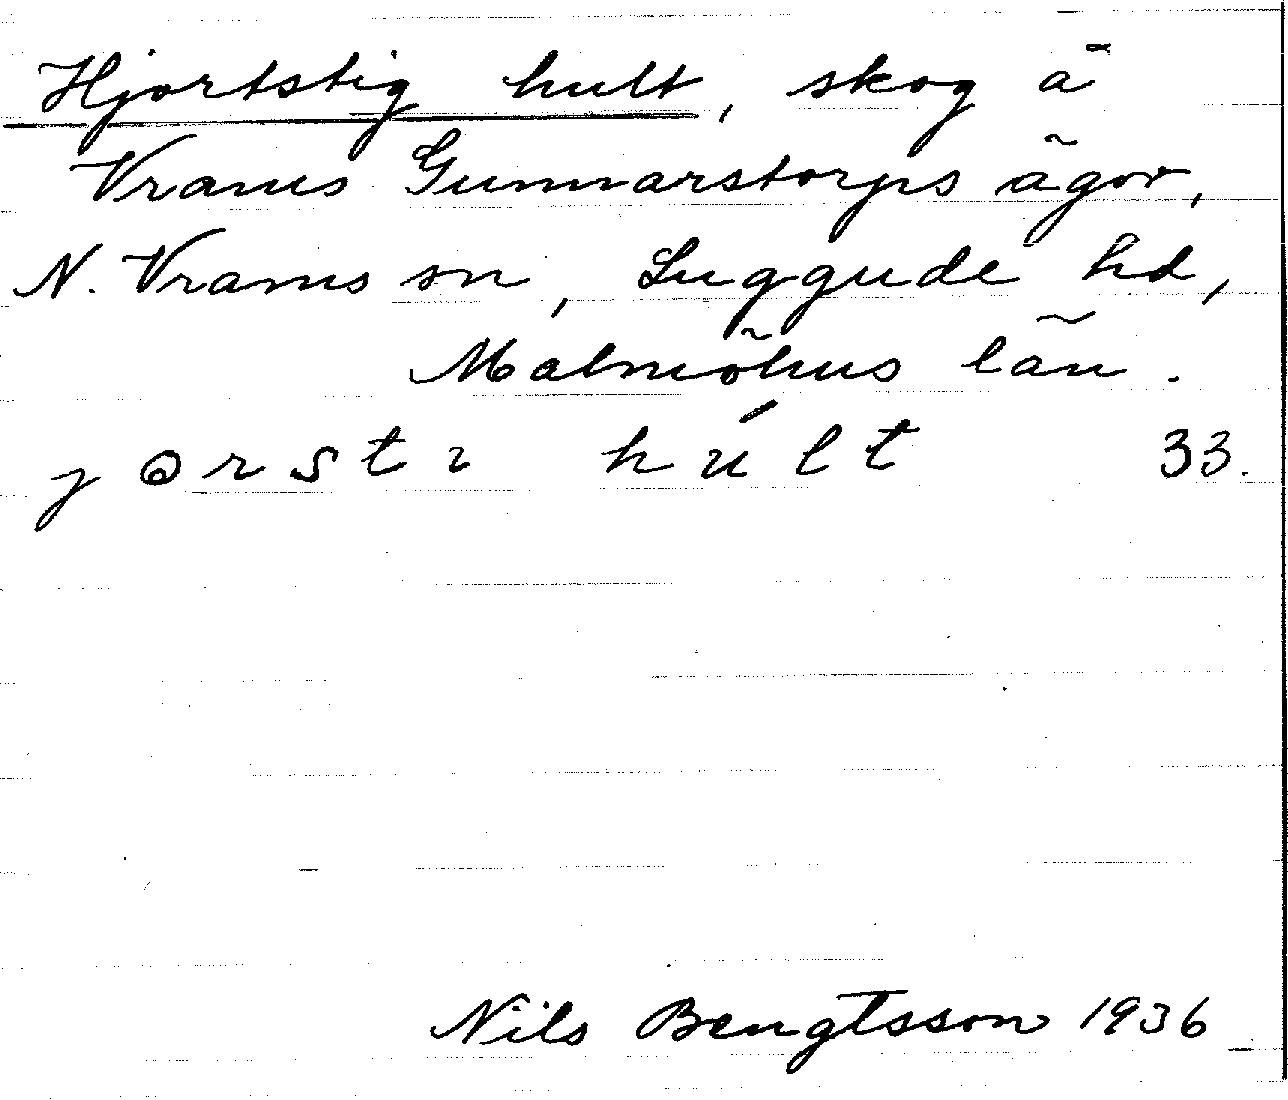 Hjortstig hult, skog å
Vrams Gunnarstorps ägor,
N. Vrams sn, Luggude hd,
Malmöhus län.
jorstı húlt 33.
Nils Bengtsson 1936